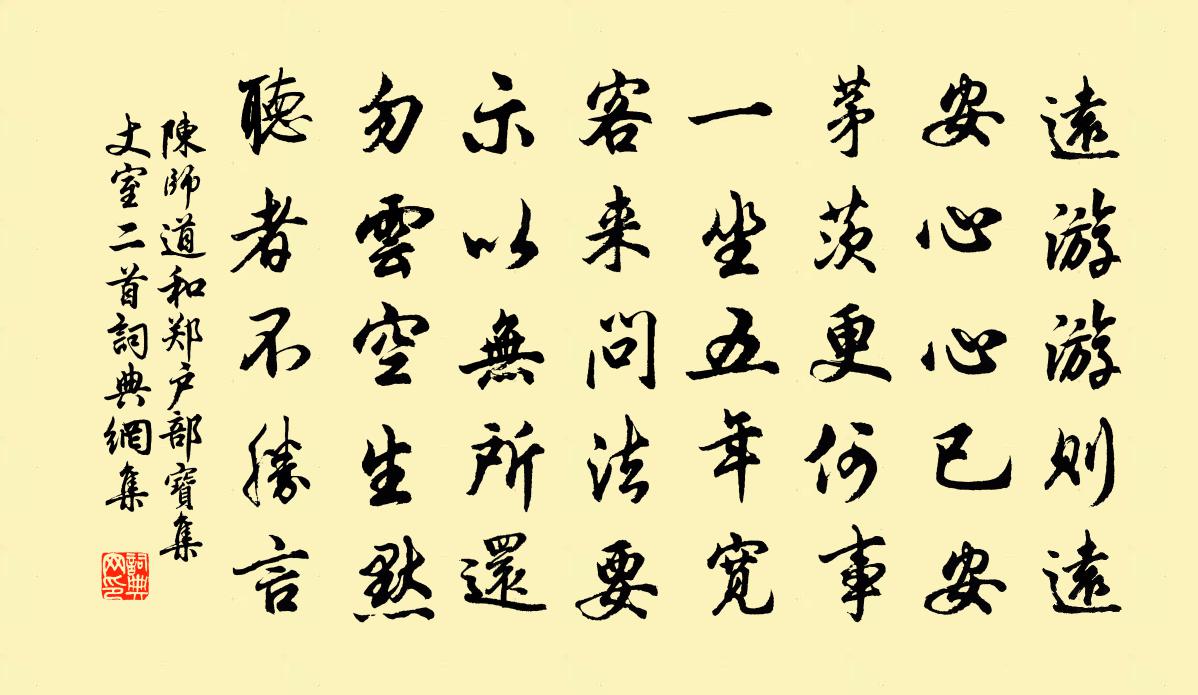 遠游游則遠
安心心已安
茅茨更何事
一坐五年寛
客来問法要
示以無所還
勿雲空生默
聽者不勝言
陳師道和郑户部寶集
丈室二首詞典網集
詞典
网印